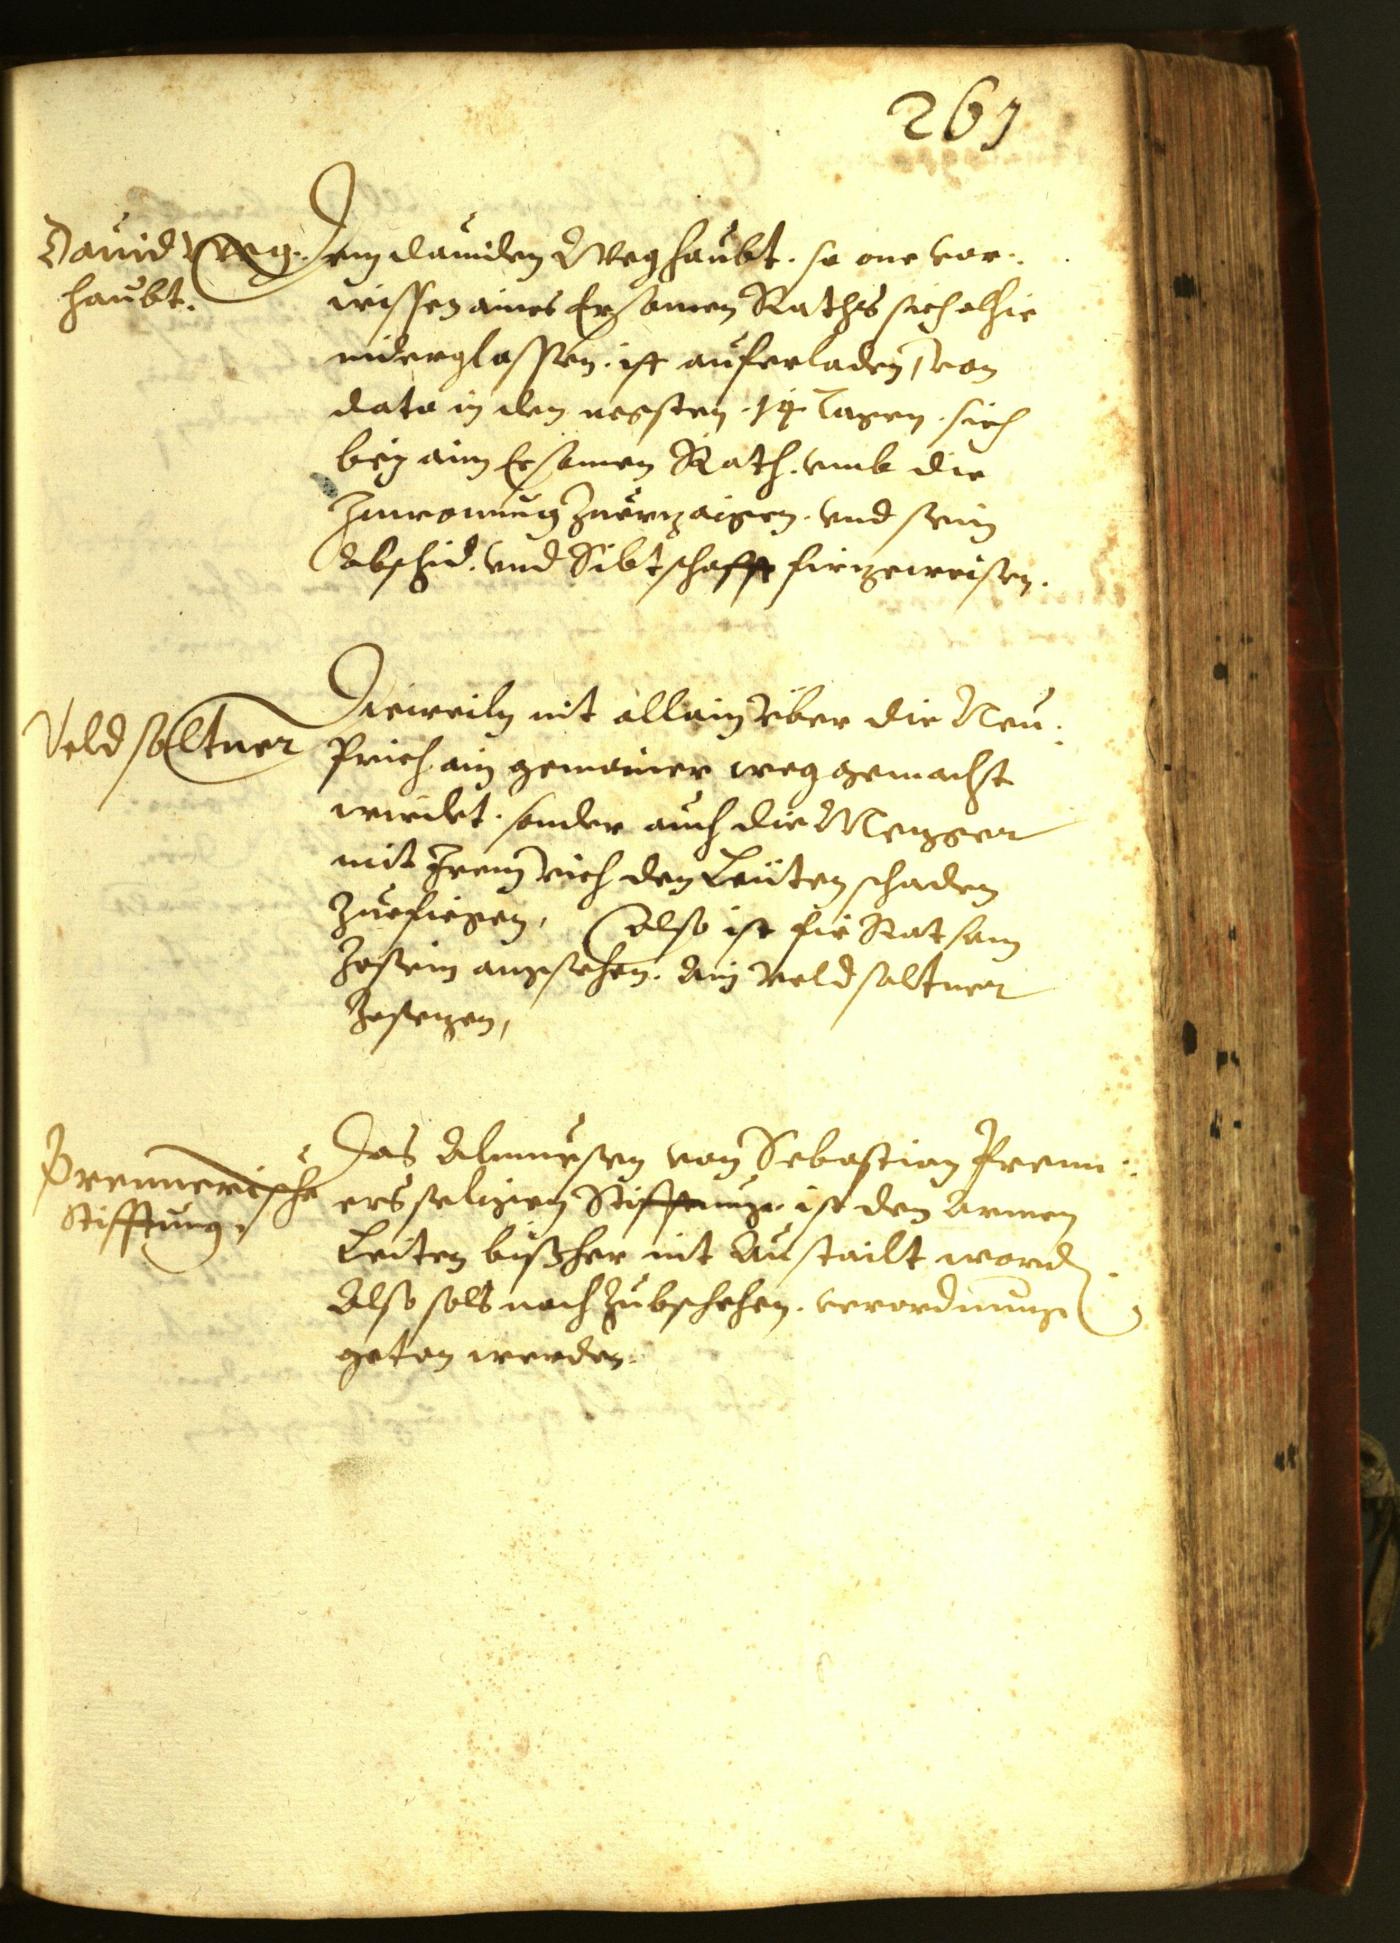 261
Dauid Weg-
haubt.
Dem dauiden Weghaubt. so one vor-
wissen aines Ersamen Raths sich alhie
niderglassen. ist auferladen, von
dato in den negsten 14 Tagen. sich
bey aim Ersamen Rath. vmb die
Inwonung zuerzaigen. vnd sein
Abschid. vnd Sibtschafft firzeweisen.
Veldsaltner
Dieweiln nit allain über die Neu-
Prich ain gemainer weg gemacht
wirdet. sonder auch die Mezger
mit Irem vich den Leüten schaden
Zuefiegen, Also ist fir Ratsam
Zesein angesehen. Ain veldsaltner
Zesezen,
Prennerische
Stifftung.
Das Almuesen von Sebastian Prenn-
ers seligen Stifftung. ist den Armen
Leiten bißher nit Austailt word
Also sols nach Zubschehen. verordnung
geton werden.